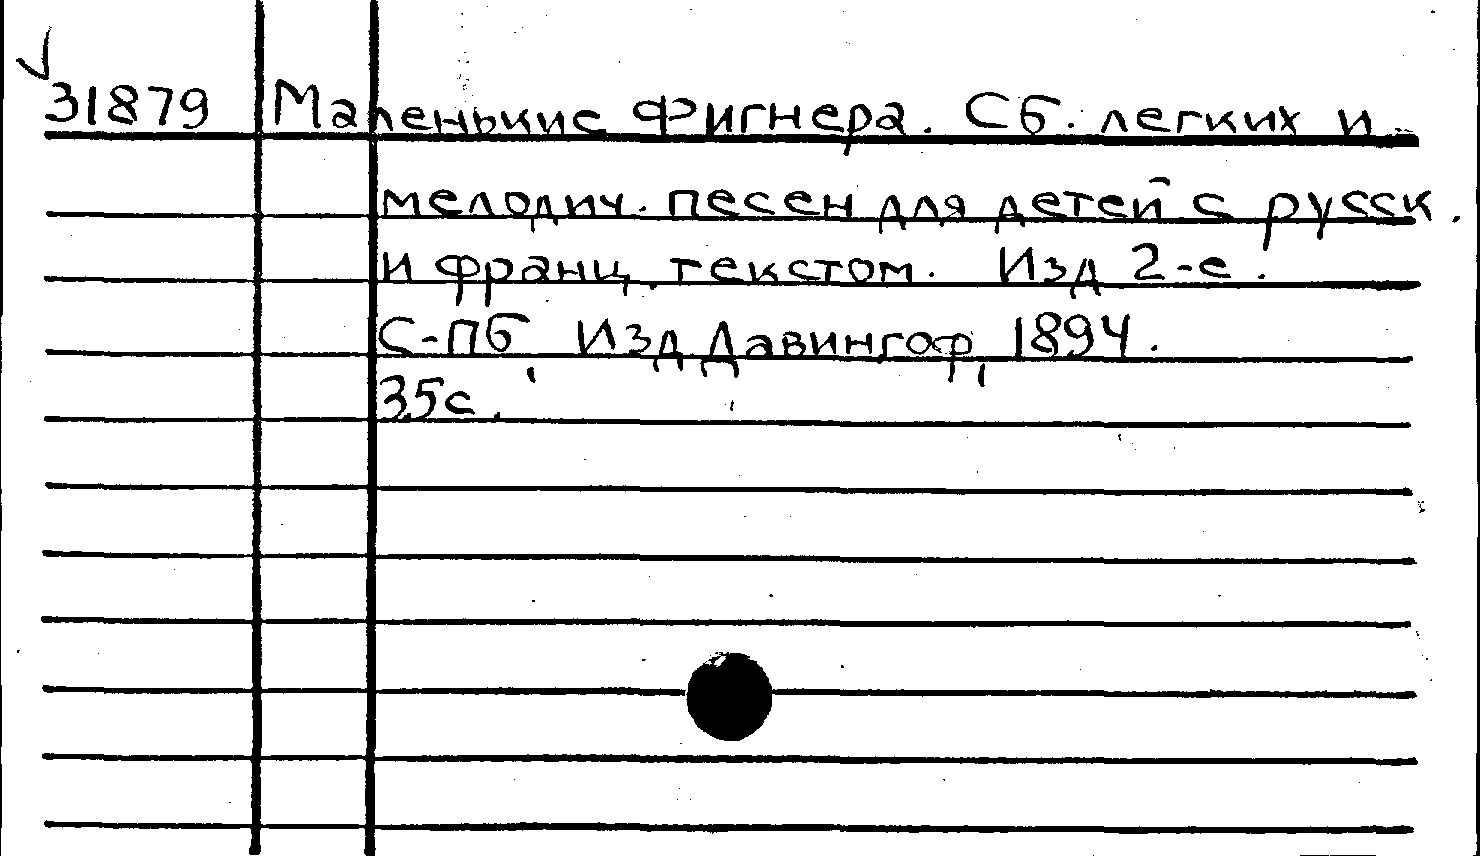 31879 Маленькие Фигнера. Сб. легких и
мелодич. песен для детей с русск.
и франц. текстом. Изд 2-е.
С-Пб, Изд Давингоф, 1894.
35с.